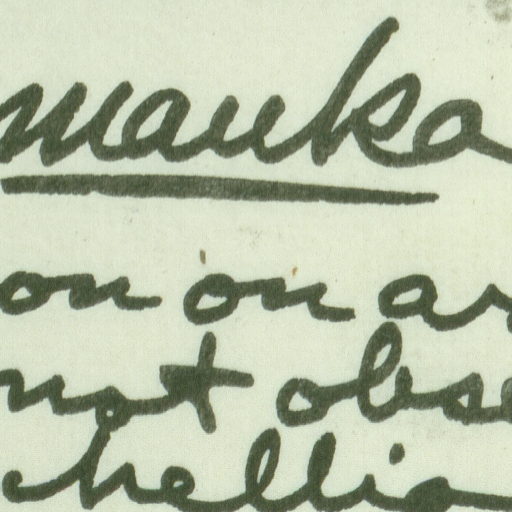 mauka
on on ar
not obse
chellia